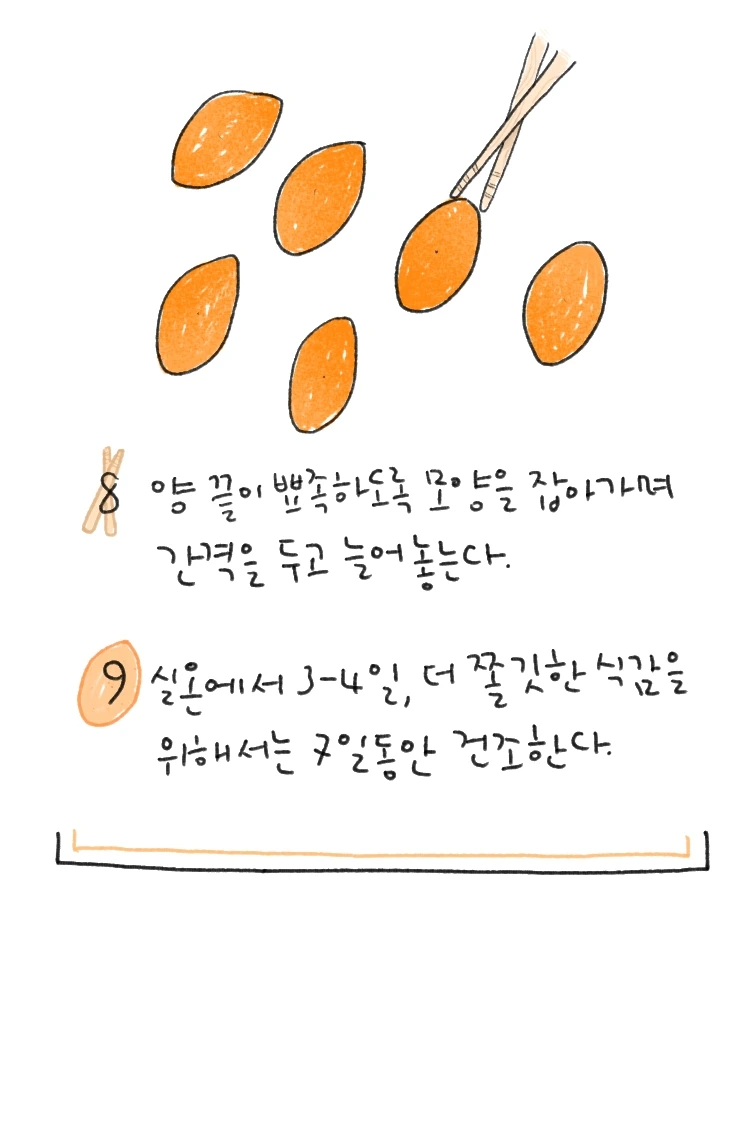 8 양 끝이 뾰족하도록 모양을 잡아가며
간격을 두고 늘어놓는다.
9 실온에서 3-4일, 더 쫄깃한 식감을
위해서는 7일동안 건조한다.